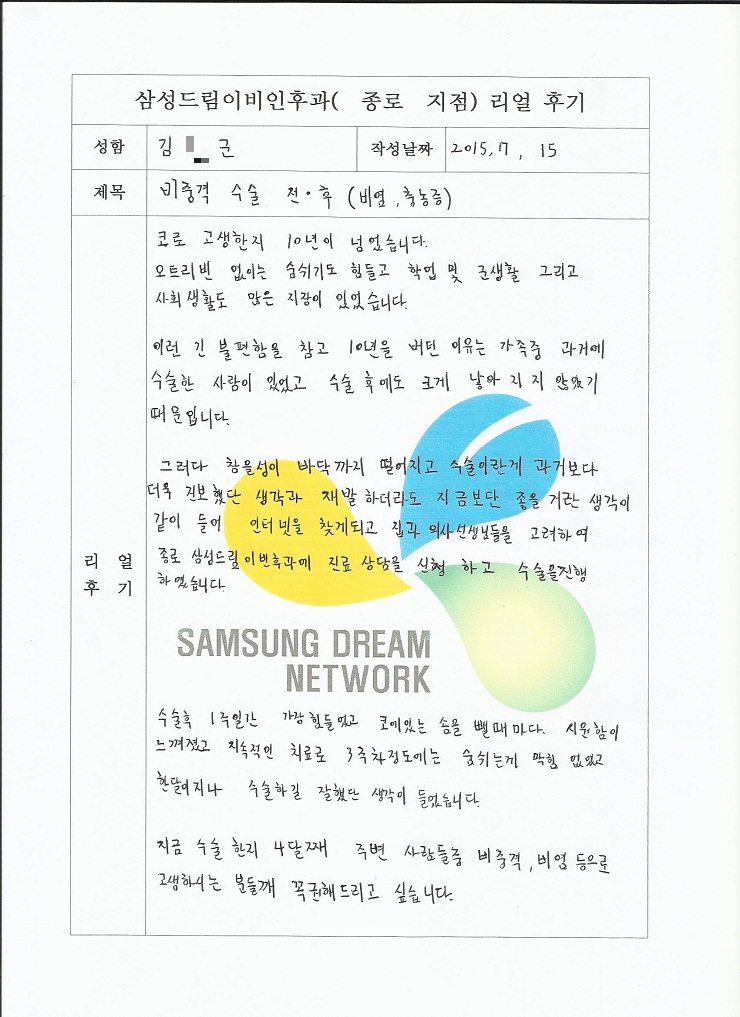 삼성드림이비인후과( 종로 지점) 리얼 후기
성함 김 군 작성날짜 2015, 7, 15
제목 비중격 수술 전·후 (비염, 축농증)
코로 고생한지 10년이 넘었습니다.
오트리빈 없이는 숨쉬기도 힘들고 학업 및 군생활 그리고
사회생활도 많은 지장이 있었습니다.
이런 긴 불편함을 참고 10년을 버틴 이유는 가족중 과거에
수술한 사람이 있었고 수술 후에도 크게 낳아 지지 않았기
때문입니다.
그러다 참을성이 바닥까지 떨어지고 수술이란게 과거보다
더욱 진보했단 생각과 재발 하더라도 지금보단 좋을 거란 생각이
같이 들어 인터넷을 찾게되고 집과 의사선생님들을 고려하여
리 얼
후 기
종로 삼성드림이빈후과에 진료 상담을 신청 하고 수술을진행
하였습니다.
SAMSUNG DREAM
NETWORK
수술후 1주일간 가장힘들었고 코에있는 솜을 뺄때마다. 시원함이
느껴졌고 지속적인 치료로 3주차정도에는 숨쉬는게 막힘 없었고
한달이지나 수술하길 잘했단 생각이 들었습니다.
지금 수술 한지 4달째 주변 사람들중 비중격, 비염 등으로
고생하시는 분들께 꼭권해드리고 싶습니다.